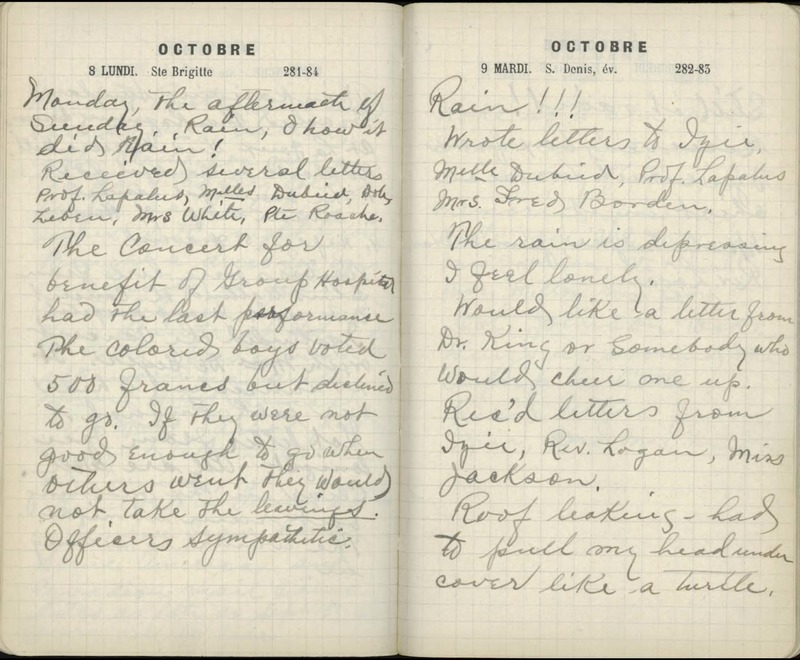 OCTOBRE
8 LUNDI. Ste Brigitte 281-84
Monday, The aftermath of
Sunday. Rain, & how it
did Rain!
Received several letters
Prof. Lapalus, Melles Dubied,
Leben, Mrs White, Pte Roache.
The Concert for
benefit of Group Hospital
had the last performance
The colored boys voted
500 francs but declined
to go. If they were not
good enough to go when
others went They would
not take the leavings.
Officers sympathetic.
OCTOBRE
9 MARDI. S. Denis, év. 282-83
Rain!!!
Wrote letters to
Melle Dubied, Prof. Lapalus
Mrs. Fred Borden.
The rain is depressing
I feel lonely.
Would like a letter from
Dr. King or Somebody who
would cheer one up.
Rec'd letters from
Rev. Logan, Miss
Jackson.
Roof leaking - had
to pull my head under
cover like a turtle.